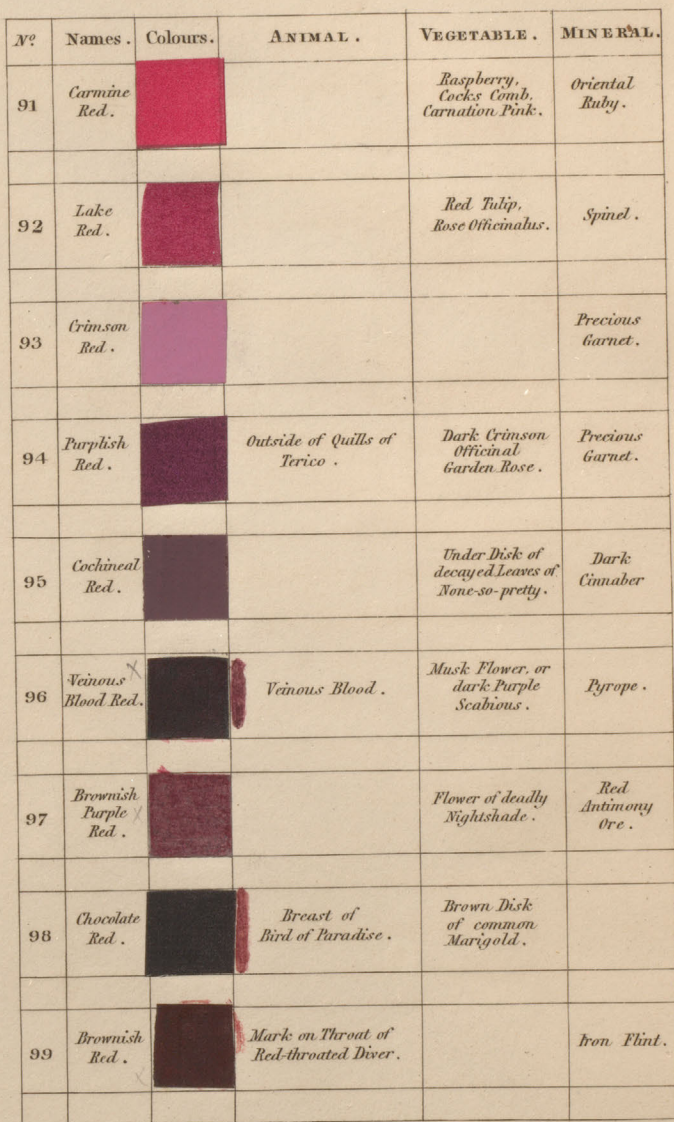 Nº Names. Colours. ANIMAL. VEGETABLE. MINERAL.
91
Carmine
Red.
Raspberry,
Cocks Comb.
Carnation Pink.
Oriental
Ruby.
92
Lake
Red.
Red Tulip,
Rose Officinalus.
Spinel.
93
Crimson
Red.
Precious
Garnet.
94
Purplish
Red.
Outside of Quills of
Terico.
Dark Crimson
Officinal
Garden Rose.
Precious
Garnet.
95
Cochineal
Red.
Under Disk of
decayed Leaves of
None-so-pretty.
Dark
Cinnaber
96
Veinous
Blood Red.
Veinous Blood.
Musk Flower, or
dark Purple
Scabious.
Pyrope.
97
Brownish
Purple
Red.
Flower of deadly
Nightshade.
Red
Antimony
Ore.
98
Chocolate
Red.
Breast of
Bird of Paradise.
Brown Disk
of common
Marigold.
99
Brownish
Red.
Mark on Throat of
Red-throated Diver.
Iron Flint.